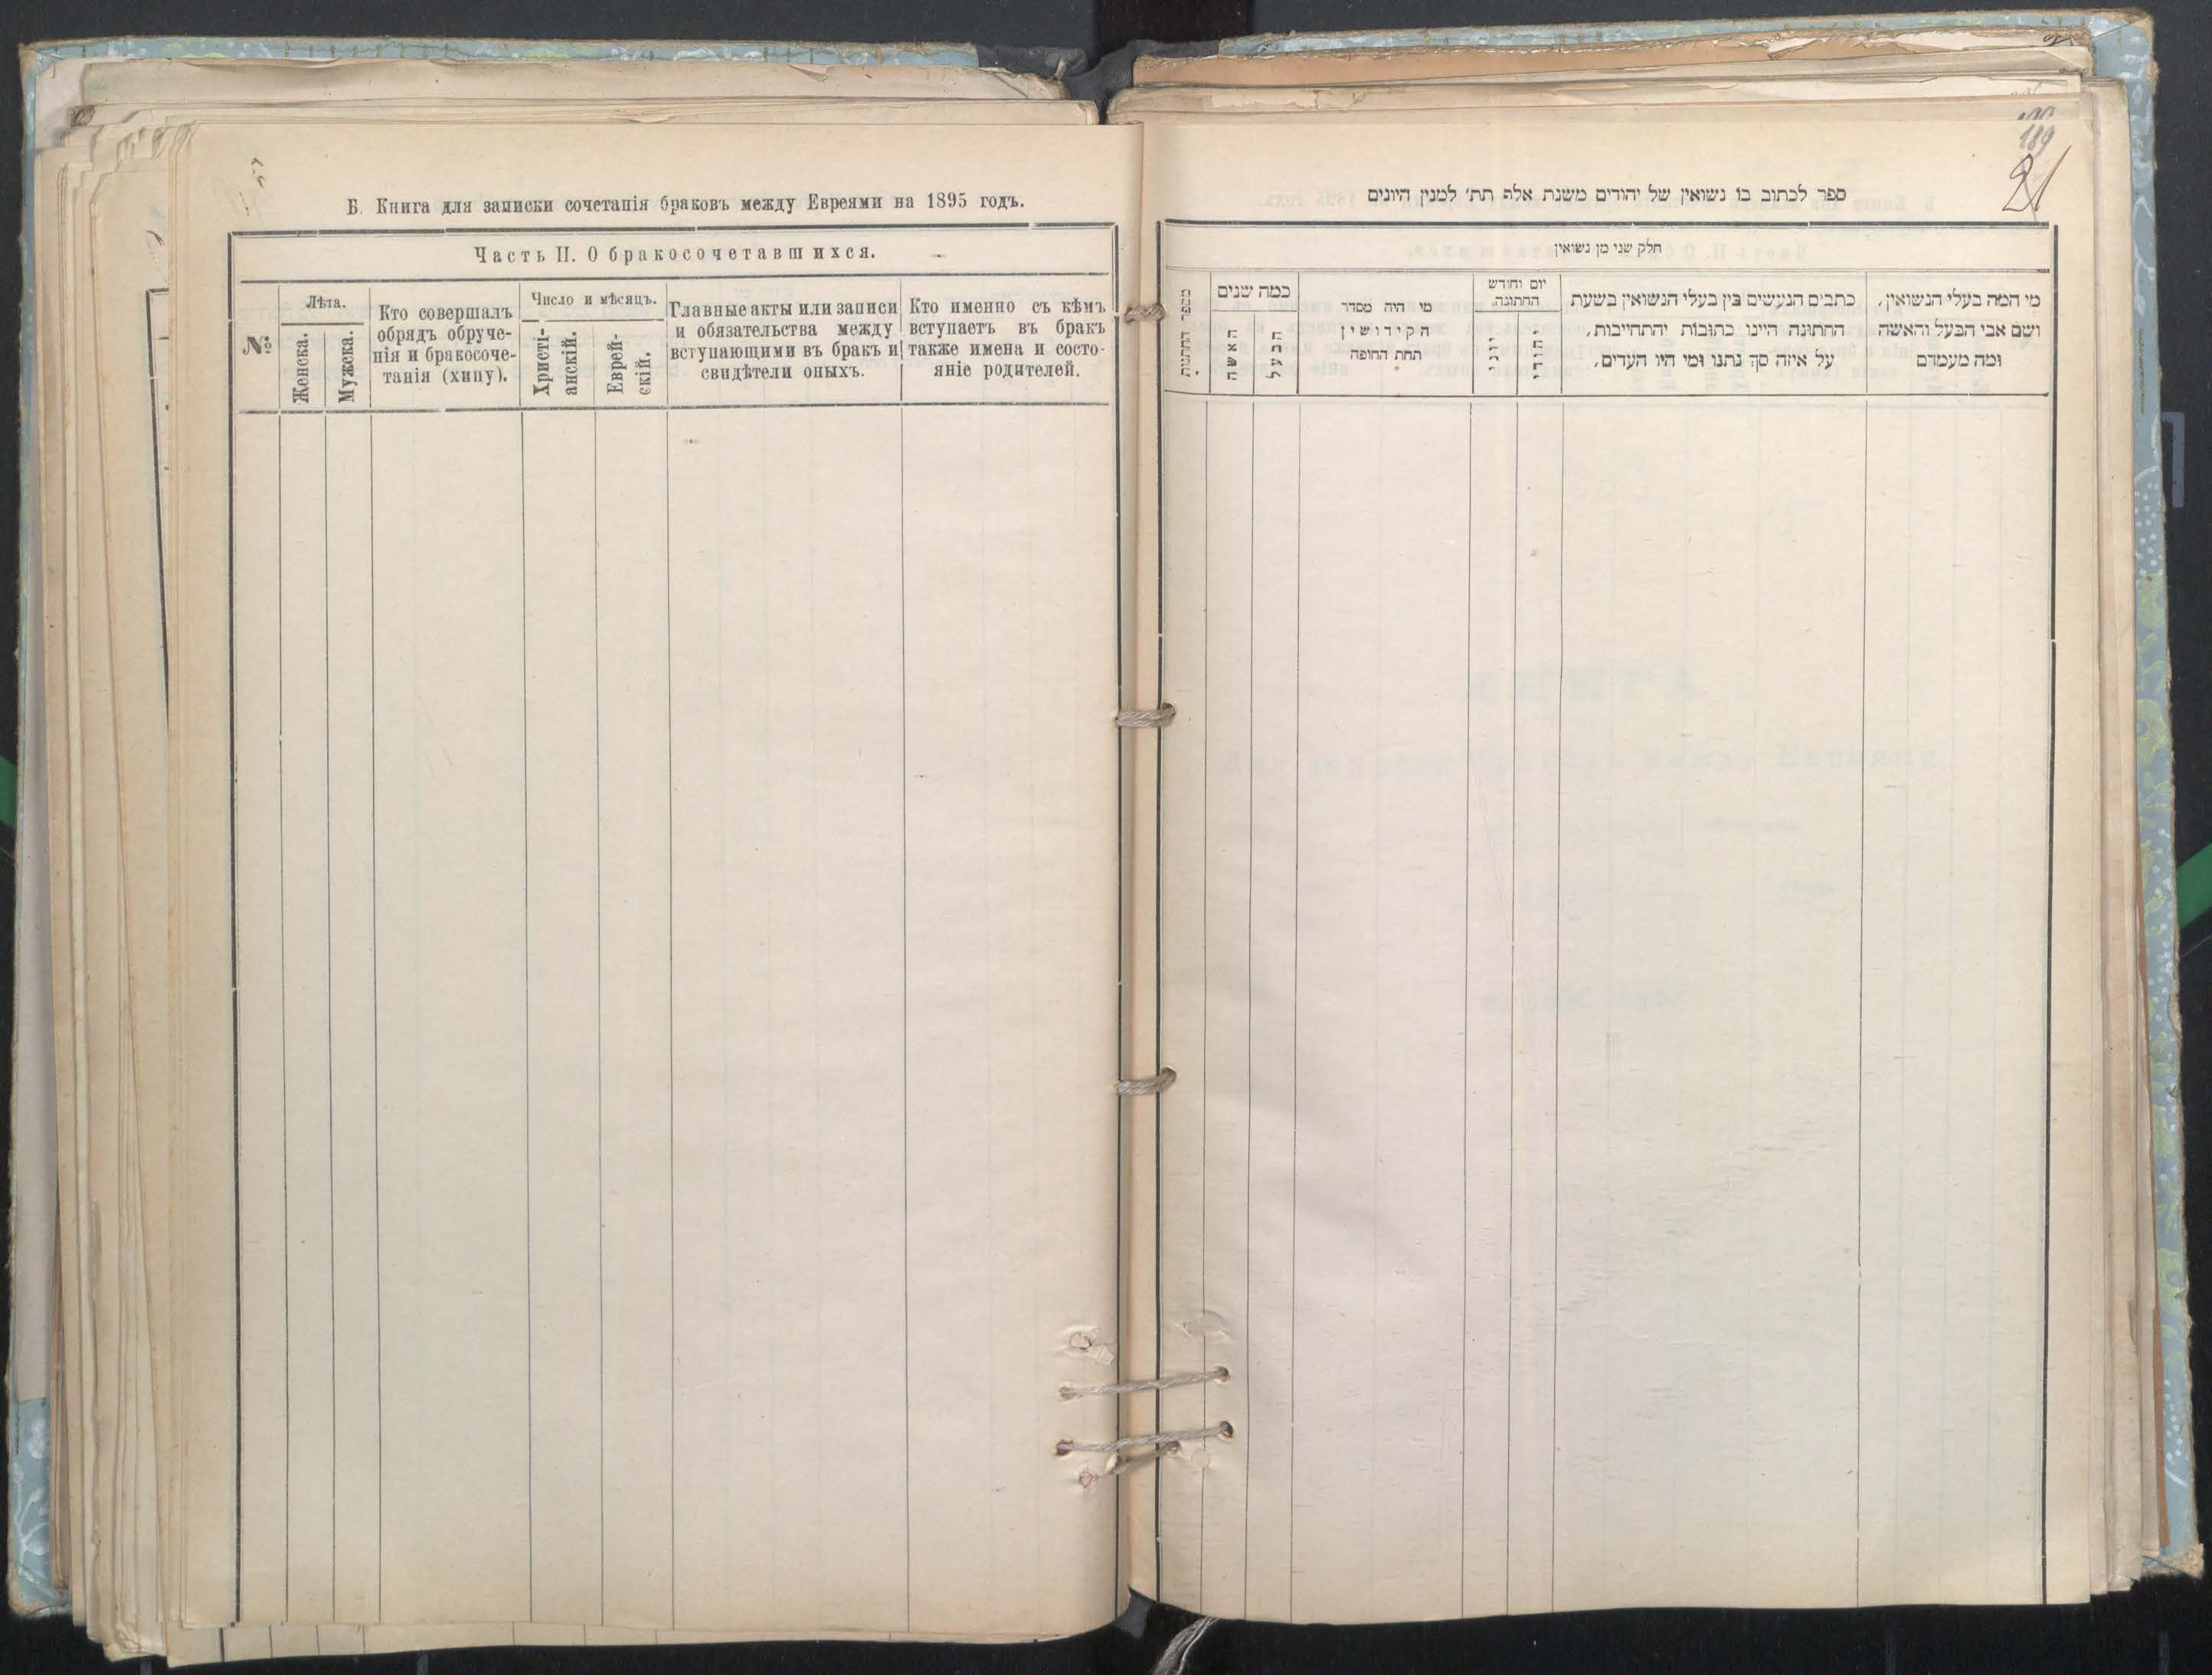 Б. Книга для записки сочетанія браковъ между Евреями на 1895 годъ.
Часть II. О бракосочетавшихся.
№
Лѣта.
Женска.
Мужска.
Кто совершалъ
обрядъ обруче-
нія и бракосоче-
танія (хипу).
Число и мѣсяцъ.
Христі-
анскій.
Еврей-
скій.
Главные акты или записи
и обязательства между
вступающими въ бракъ и
свидѣтели оныхъ.
Кто именно съ кѣмъ
вступаетъ въ бракъ
также имена и состо-
яніе родителей.
189
21
ספר לכתוב בו נשואין של יהודים משנת אלה תת׳ למנין היונים
חלק שני מן נשואין
מספר החתנות
כמה שנים
האשה
הבעל
מי היה מסדר
הקידושין
תחת החופה
יום וחודש
החתונה.
יוני
יהודי
כתבים הנעשים בין בעלי הנשואין בשעת
החתונה היינו כתובות והתחייבות,
על איזה סך נתנו ומי היו העדים,
מי המה בעלי הנשואין,
ושם אבי הבעל והאשה
ומה מעמדם